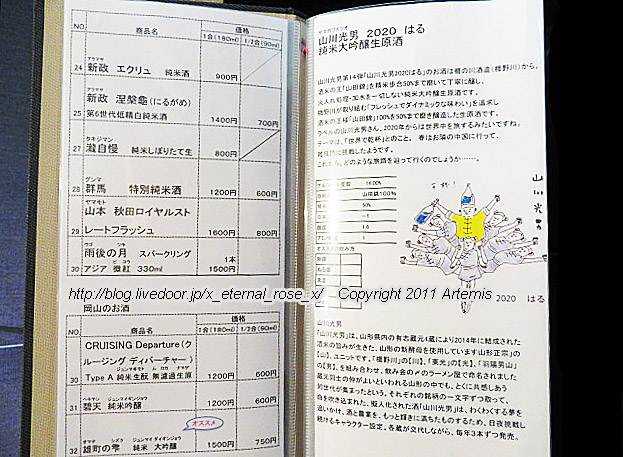 NO.
商品名
価格
1合(180ml)
1/2合(90ml)
アラマサ
24 新政 エクリュ 純米酒 900円
アラマサ
新政 涅槃龜(にるがめ)
25 第6世代低精白純米酒 1400円 700円
タキジマン
27 瀧自慢 純米しぼりたて生 800円
グンマ
28 群馬 特別純米酒 1200円 600円
ヤマモト
山本 秋田ロイヤルスト
29 レートフラッシュ 1600円 800円
ウゴ ツキ
雨後の月 スパークリング 1本
30 アジア 微紅 330ml 1500円
岡山のお酒
NO.
商品名
価格
1合(180ml)
1/2合(90ml)
CRUISING Departure(ク
ルージング ディパーチャー )
30 Type A 純米生酛 無濾過生原 1200円 600円
31 碧天 純米吟醸 1200円 600円
オススメ
32 雄町の雫 純米 大吟醸 1500円 750円
ヤマカワミツオ
山川光男 2020 はる
純米大吟醸生原酒
山川光男第14弾「山川光男2020はる」のお酒は楯の川酒造(楯野川)から。
酒米の王「山田錦」を精米歩合50%まで磨いて丁寧に醸し、
火入れ処理・加水を一切しない純米大吟醸生原酒です。
楯野川が取り組む「フレッシュでダイナミックな味わい」を追求し、
酒米の王様「山田錦」100%を50%まで磨き醸造した生原酒です。
ラベルの山川光男さん、2020年からは世界中を旅するみたいですね。
テーマは、「世界で乾杯」とのこと。 春はお隣の中国に行って、
雑技団に挑戦したようです。
これから、どのような旅路を辿って行くのでしょうか……。
山田錦100%
50%
山川光男
2020 はる
http://blog.livedoor.jp/x_eternal_rose_x/ Copyright 2011 Artemis
山川光男
「山川光男」は、山形県内の有志蔵元4蔵により2014年に結成された
酒米の旨みが生きた、山形の新酵母を使用しています山形正宗」の
【山】、ユニットです。「楯野川」の【川】、「東光」の【光】、「羽陽男山」
の【男】を、組み合わせ、飲み会の〆のラーメン屋で命名されました
蔵元同士の仲がよいといわれる山形の中でも、とくに共感しあう
同世代が集まったという。それぞれの銘柄の一文字ずつ取って、
命を吹き込まれた、擬人化された酒「山川光男」は、わくわくする夢を
追いかけ、酒と農業を、もっと輝きに満ちたものするため、日夜挑戦し
続けるキャラクター設定。各蔵が交代しながら、毎年3本ずつ発売。